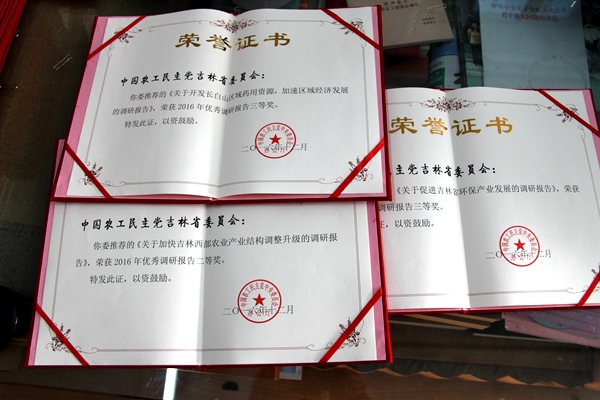 荣誉证书
中国农工民主党吉林省委员会：
你委推荐的《关于开发长白山区域药用资源，加速区域经济发展
的调研报告》，荣获2016年优秀调研报告三等奖。
特发此证，以资鼓励。
二〇一六年十二月
中国农工民主党吉林省委员会：
你委推荐的《关于加快吉林西部农业产业结构调整升级的调研报
告》，荣获2016年优秀调研报告二等奖。
特发此证，以资鼓励。
二〇一六年十二月
荣誉证书
民主党吉林省委员会：
《关于促进吉林省环保产业发展的调研报告》，荣获
调研报告三等奖。
，以资鼓励。
二〇一六年十二月